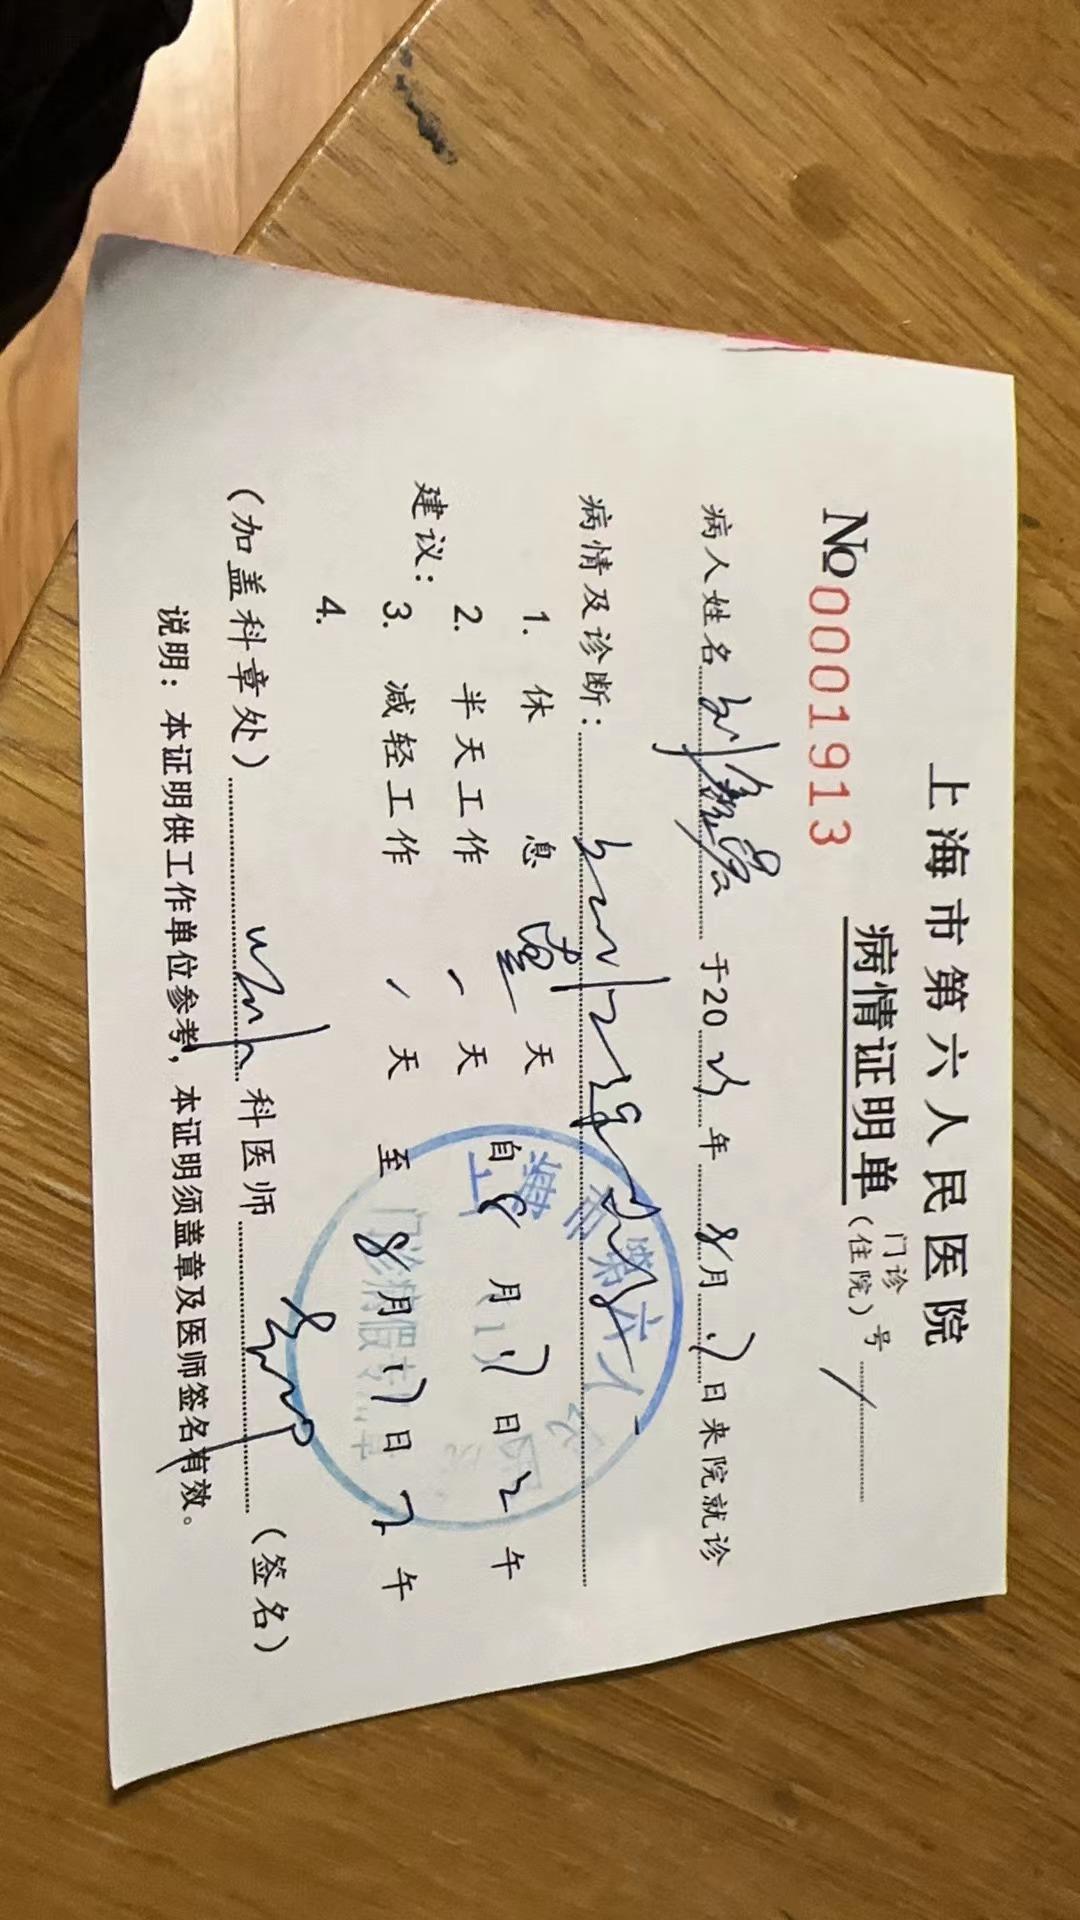 上海市第六人民医院
病情证明单 门诊（住院）号 /
№0001913
病人姓名 刘 于20 年 8月 日来院就诊
病情及诊断：
建议：
1. 休 息 壹 天 自 8 月 日 午
2. 半天工作 / 天
3. 减轻工作 / 天 至 8月 17日 下 午
4.
（加盖科章处） 科医师 （签名）
说明：本证明供工作单位参考，本证明须盖章及医师签名有效。
上海市第六人
(1)
门诊病假专用章